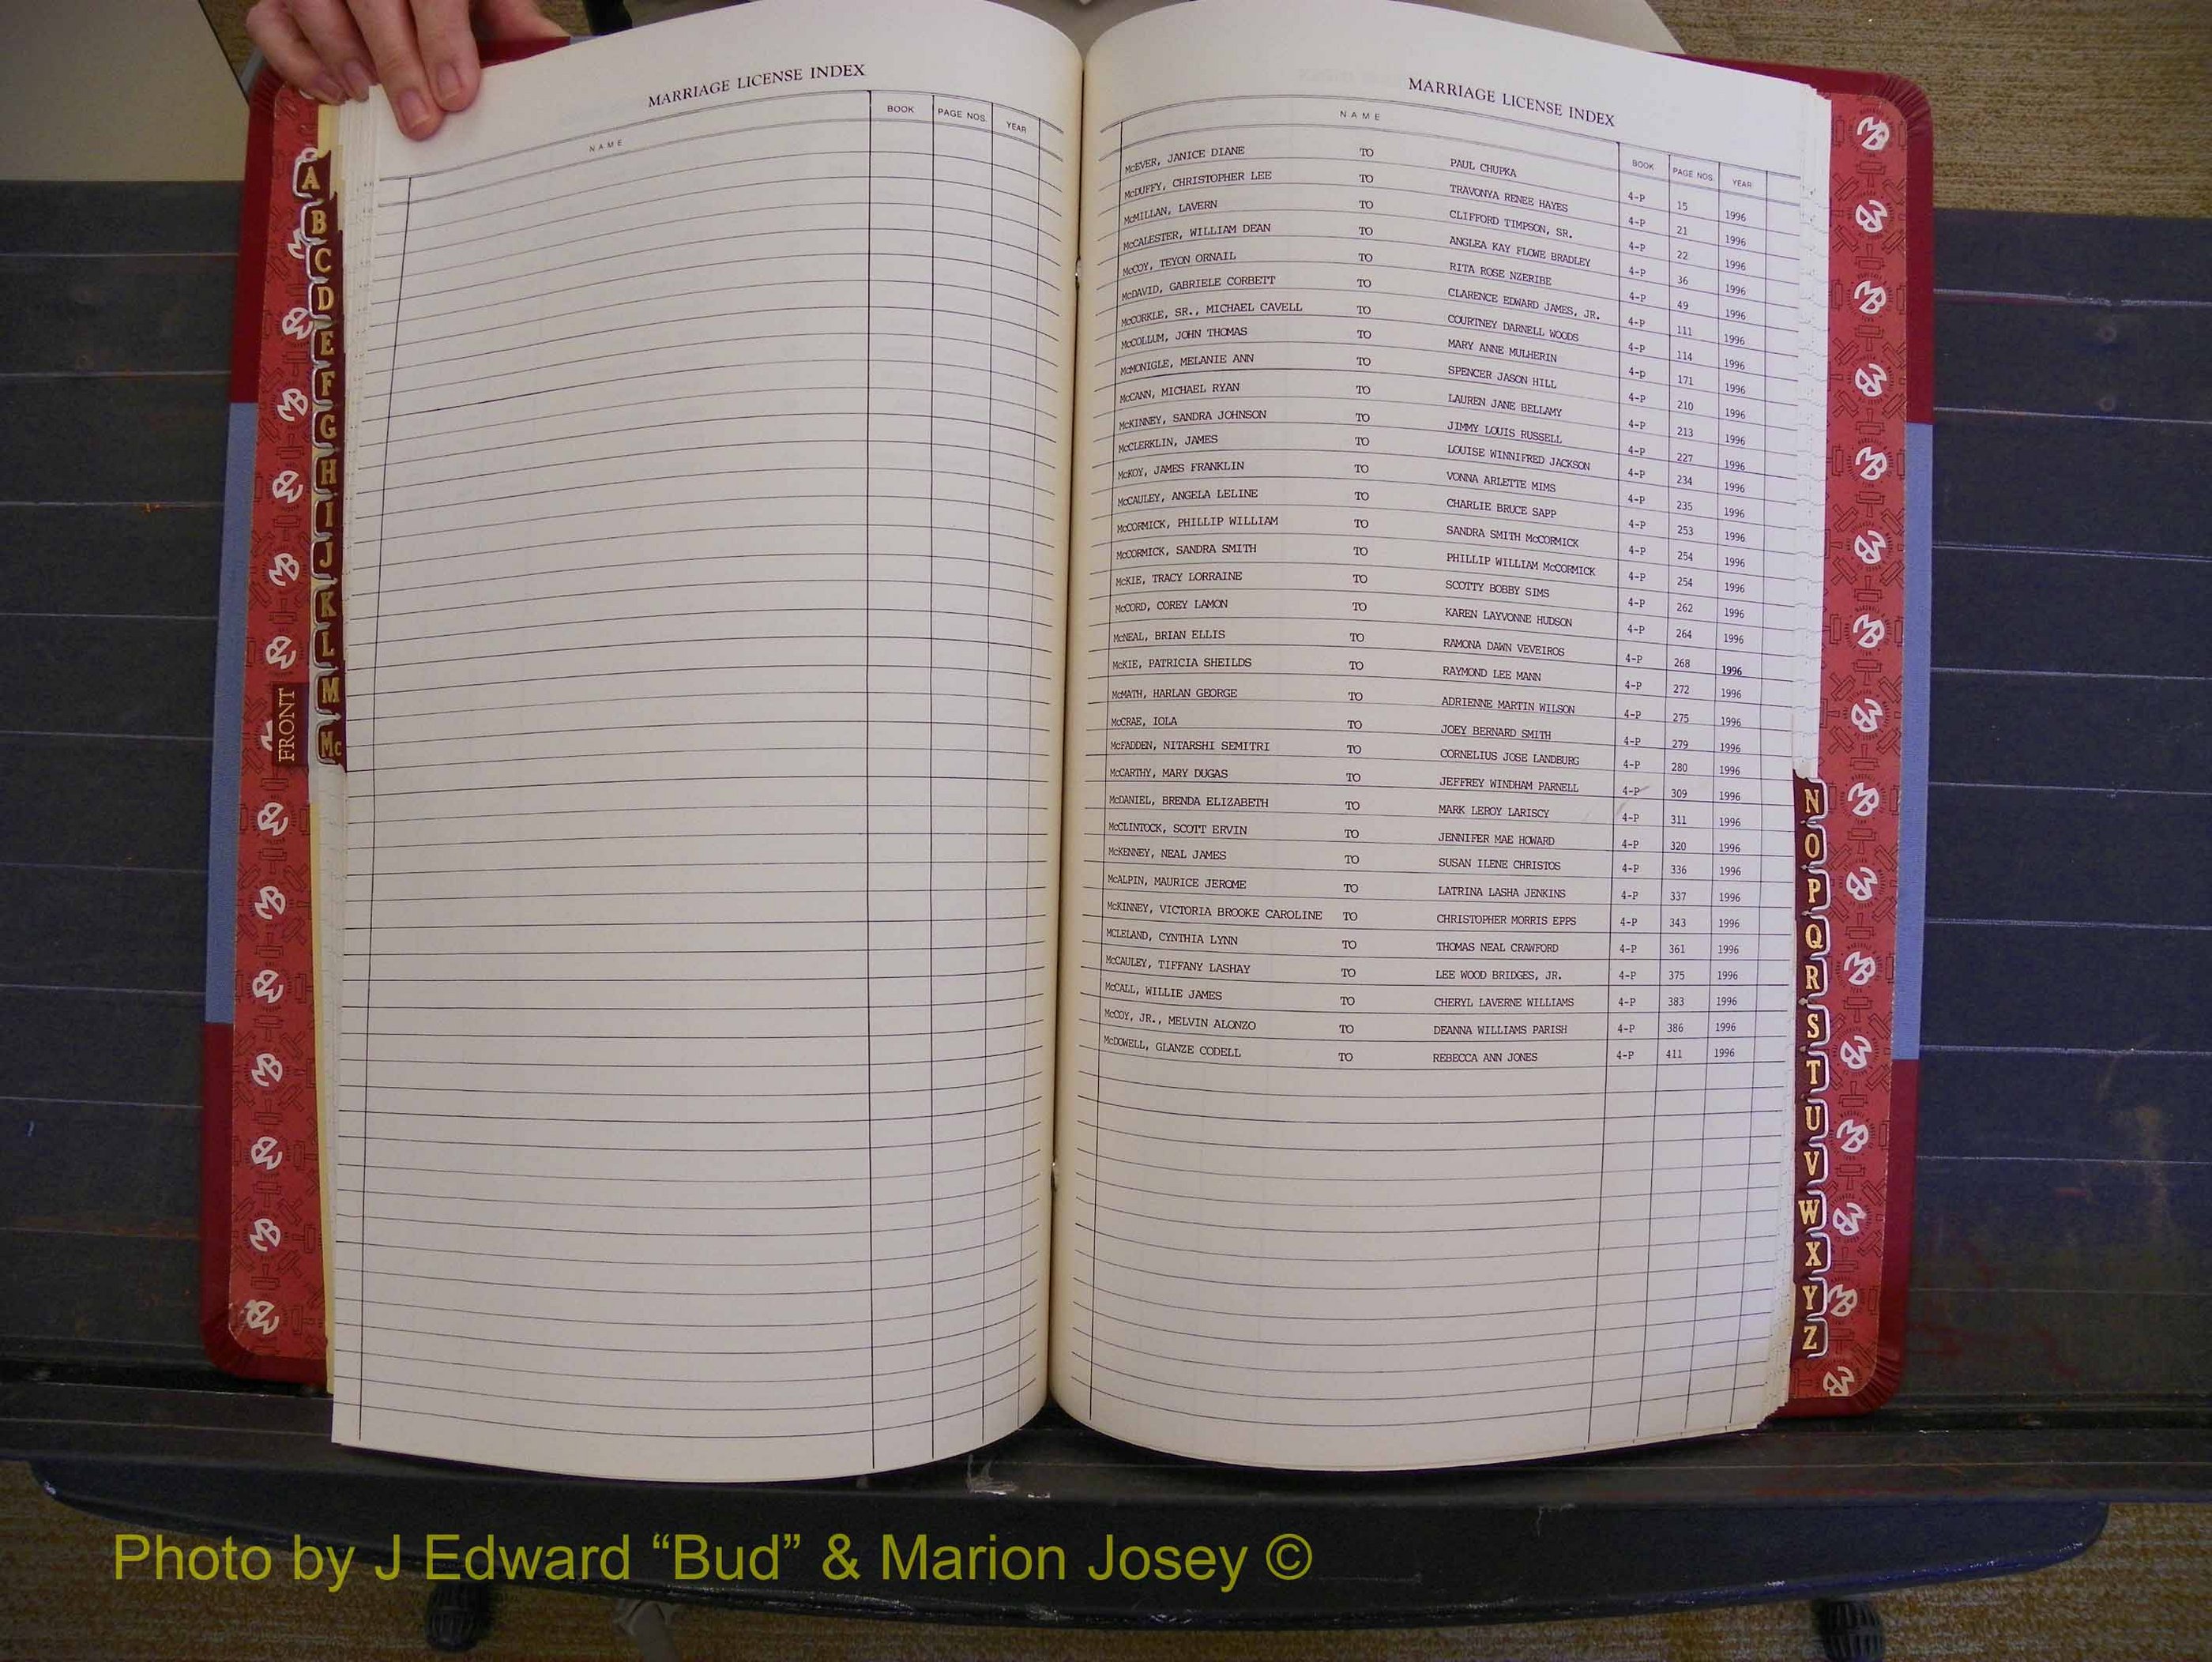 MARRIAGE LICENSE INDEX
NAME BOOK PAGE NOS. YEAR
A
B
C
D
E
F
G
H
I
J
K
L
M
Mc
FRONT
MARRIAGE LICENSE INDEX
NAME BOOK PAGE NOS. YEAR
McEVER, JANICE DIANE TO PAUL CHUPKA 4-P 15 1996
McDUFFY, CHRISTOPHER LEE TO TRAVONYA RENEE HAYES 4-P 21 1996
McMILLAN, LAVERN TO CLIFFORD TIMPSON, SR. 4-P 22 1996
McCALESTER, WILLIAM DEAN TO ANGLEA KAY FLOWE BRADLEY 4-P 36 1996
McCOY, TEYON ORNAIL TO RITA ROSE NZERIBE 4-P 49 1996
McDAVID, GABRIELE CORBETT TO CLARENCE EDWARD JAMES, JR. 4-P 111 1996
McCORKLE, SR., MICHAEL CAVELL TO COURTNEY DARNELL WOODS 4-P 114 1996
McCOLLUM, JOHN THOMAS TO MARY ANNE MULHERIN 4-p 171 1996
McMONIGLE, MELANIE ANN TO SPENCER JASON HILL 4-P 210 1996
McCANN, MICHAEL RYAN TO LAUREN JANE BELLAMY 4-P 213 1996
McKINNEY, SANDRA JOHNSON TO JIMMY LOUIS RUSSELL 4-P 227 1996
McCLERKLIN, JAMES TO LOUISE WINNIFRED JACKSON 4-P 234 1996
McKOY, JAMES FRANKLIN TO VONNA ARLETTE MIMS 4-P 235 1996
McCAULEY, ANGELA LELINE TO CHARLIE BRUCE SAPP 4-P 253 1996
McCORMICK, PHILLIP WILLIAM TO SANDRA SMITH McCORMICK 4-P 254 1996
McCORMICK, SANDRA SMITH TO PHILLIP WILLIAM McCORMICK 4-P 254 1996
McKIE, TRACY LORRAINE TO SCOTTY BOBBY SIMS 4-P 262 1996
McCORD, COREY LAMON TO KAREN LAYVONNE HUDSON 4-P 264 1996
McNEAL, BRIAN ELLIS TO RAMONA DAWN VEVEIROS 4-P 268 1996
McKIE, PATRICIA SHEILDS TO RAYMOND LEE MANN 4-P 272 1996
McMATH, HARLAN GEORGE TO ADRIENNE MARTIN WILSON 4-P 275 1996
McCRAE, IOLA TO JOEY BERNARD SMITH 4-P 279 1996
McFADDEN, NITARSHI SEMITRI TO CORNELIUS JOSE LANDBURG 4-P 280 1996
McCARTHY, MARY DUGAS TO JEFFREY WINDHAM PARNELL 4-P 309 1996
McDANIEL, BRENDA ELIZABETH TO MARK LEROY LARISCY 4-P 311 1996
McCLINTOCK, SCOTT ERVIN TO JENNIFER MAE HOWARD 4-P 320 1996
McKENNEY, NEAL JAMES TO SUSAN ILENE CHRISTOS 4-P 336 1996
McALPIN, MAURICE JEROME TO LATRINA LASHA JENKINS 4-P 337 1996
McKINNEY, VICTORIA BROOKE CAROLINE TO CHRISTOPHER MORRIS EPPS 4-P 343 1996
MCLELAND, CYNTHIA LYNN TO THOMAS NEAL CRAWFORD 4-P 361 1996
McCAULEY, TIFFANY LASHAY TO LEE WOOD BRIDGES, JR. 4-P 375 1996
McCALL, WILLIE JAMES TO CHERYL LAVERNE WILLIAMS 4-P 383 1996
McCOY, JR., MELVIN ALONZO TO DEANNA WILLIAMS PARISH 4-P 386 1996
McDOWELL, GLANZE CODELL TO REBECCA ANN JONES 4-P 411 1996
N
O
P
Q
R
S
T
U
V
W
X
Y
Z
Photo by J Edward “Bud” & Marion Josey ©